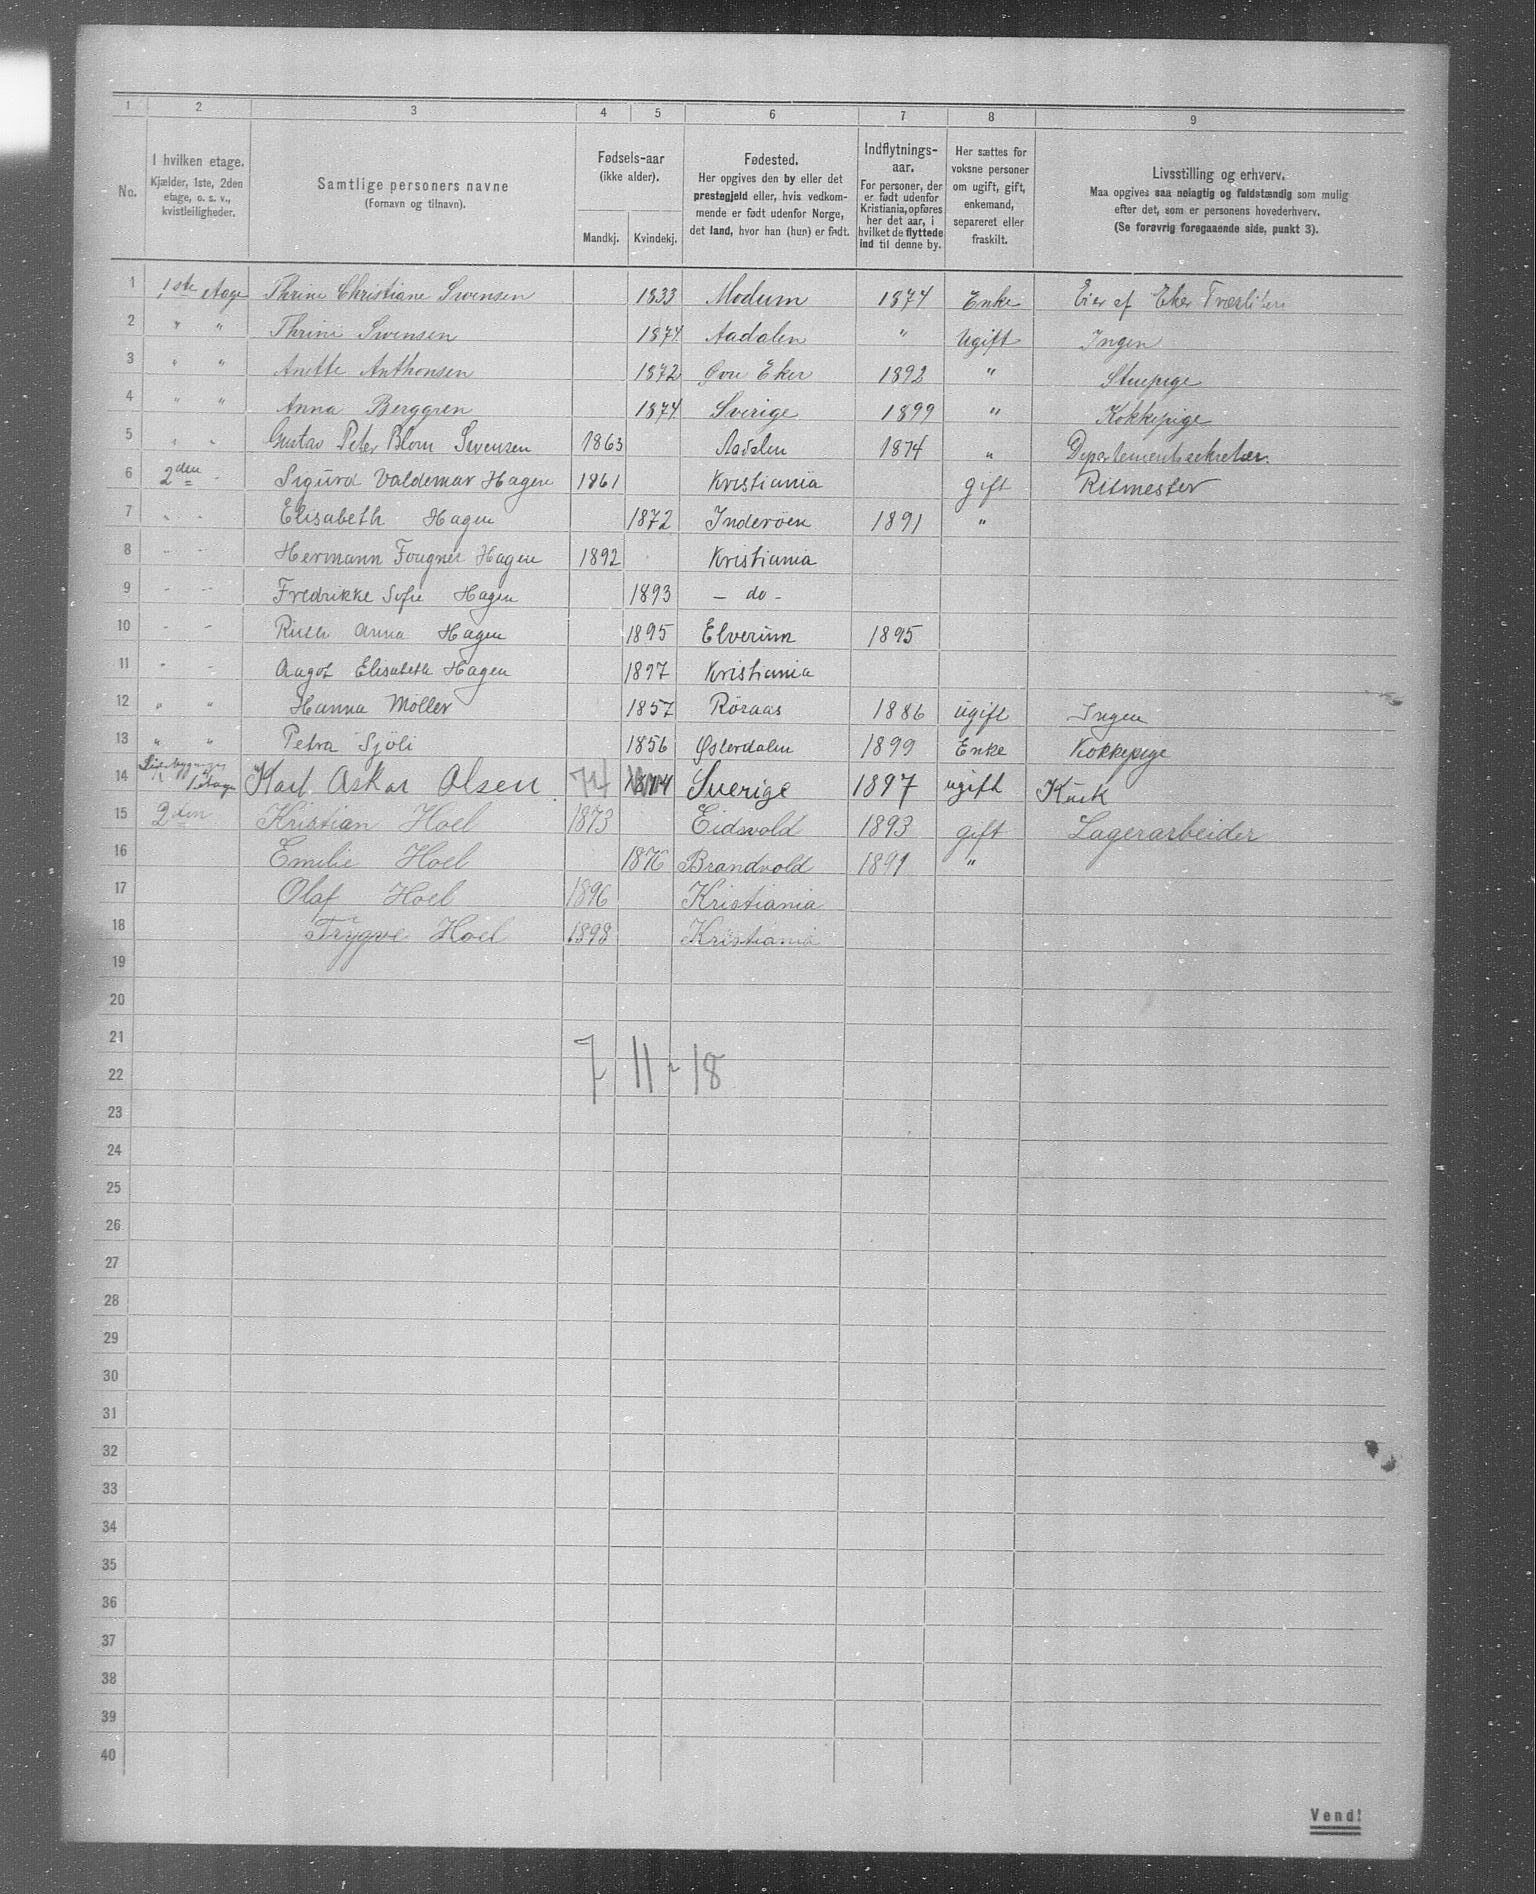 1 2 3 4 5 6 7 8 9
No.
I hvilken etage.
Kjælder, 1ste, 2den
etage, o. s. v.,
kvistleiligheder.
Samtlige personers navne
(Fornavn og tilnavn).
Fødsels-aar
(ikke alder).
Mandkj. Kvindekj.
Fødested.
Her opgives den by eller det
prestegjeld eller, hvis vedkom-
mende er født udenfor Norge,
det land, hvor han (hun) er født.
Indflytnings-
aar.
For personer, der
er født udenfor
Kristiania, opføres
her det aar, i
hvilket de flyttede
ind til denne by.
Her sættes for
voksne personer
om ugift, gift,
enkemand,
separeret eller
fraskilt.
Livsstilling og erhverv.
Maa opgives saa nøiagtig og fuldstændig som mulig
efter det, som er personens hovederhverv.
(Se forøvrig foregaaende side, punkt 3).
1 1ste etage Thrine Christiane Swensen 1833 Modum 1874 Enke Eier af Eker Træsliberi
2 " " Thrine Swensen 1874 Aadalen " Ugift Ingen
3 " " Anette Anthonsen 1872 Øvre Eker 1892 " Stuepige
4 " " Anna Berggren 1874 Sverige 1899 " Kokkepige
5 " " Gustav Peter Blom Swensen 1863 Aadalen 1874 " Departementssekretær.
6 2den - Sigurd Valdemar Hagen 1861 Kristiania gift Ritmester
7 " " Elisabeth Hagen 1872 Inderöen 1891 "
8 " " Hermann Fougner Hagen 1892 Kristiania
9 - - Fredrikke Sofie Hagen 1893 - do -
10 - - Ruth Anna Hagen 1895 Elverum 1895
11 - - Aagot Elisabeth Hagen 1897 Kristiania
12 " " Hanna Möller 1857 Röraas 1886 ugift Ingen
13 " " Petra Sjöli 1856 Østerdalen 1899 Enke Kokkepige
14 1 etage Karl Askar Olsen 74 1874 Sverige 1897 ugift Kusk
15 2den Kristian Hoel 1873 Eidsvold 1893 gift Lagerarbeider
16 Emilie Hoel 1876 Brandvold 1891 "
17 Olaf Hoel 1896 Kristiania
18 Trygve Hoel 1898 Kristiania
19
20
21
7 11 - 18
22
23
24
25
26
27
28
29
30
31
32
33
34
35
36
37
38
39
40
Vend!